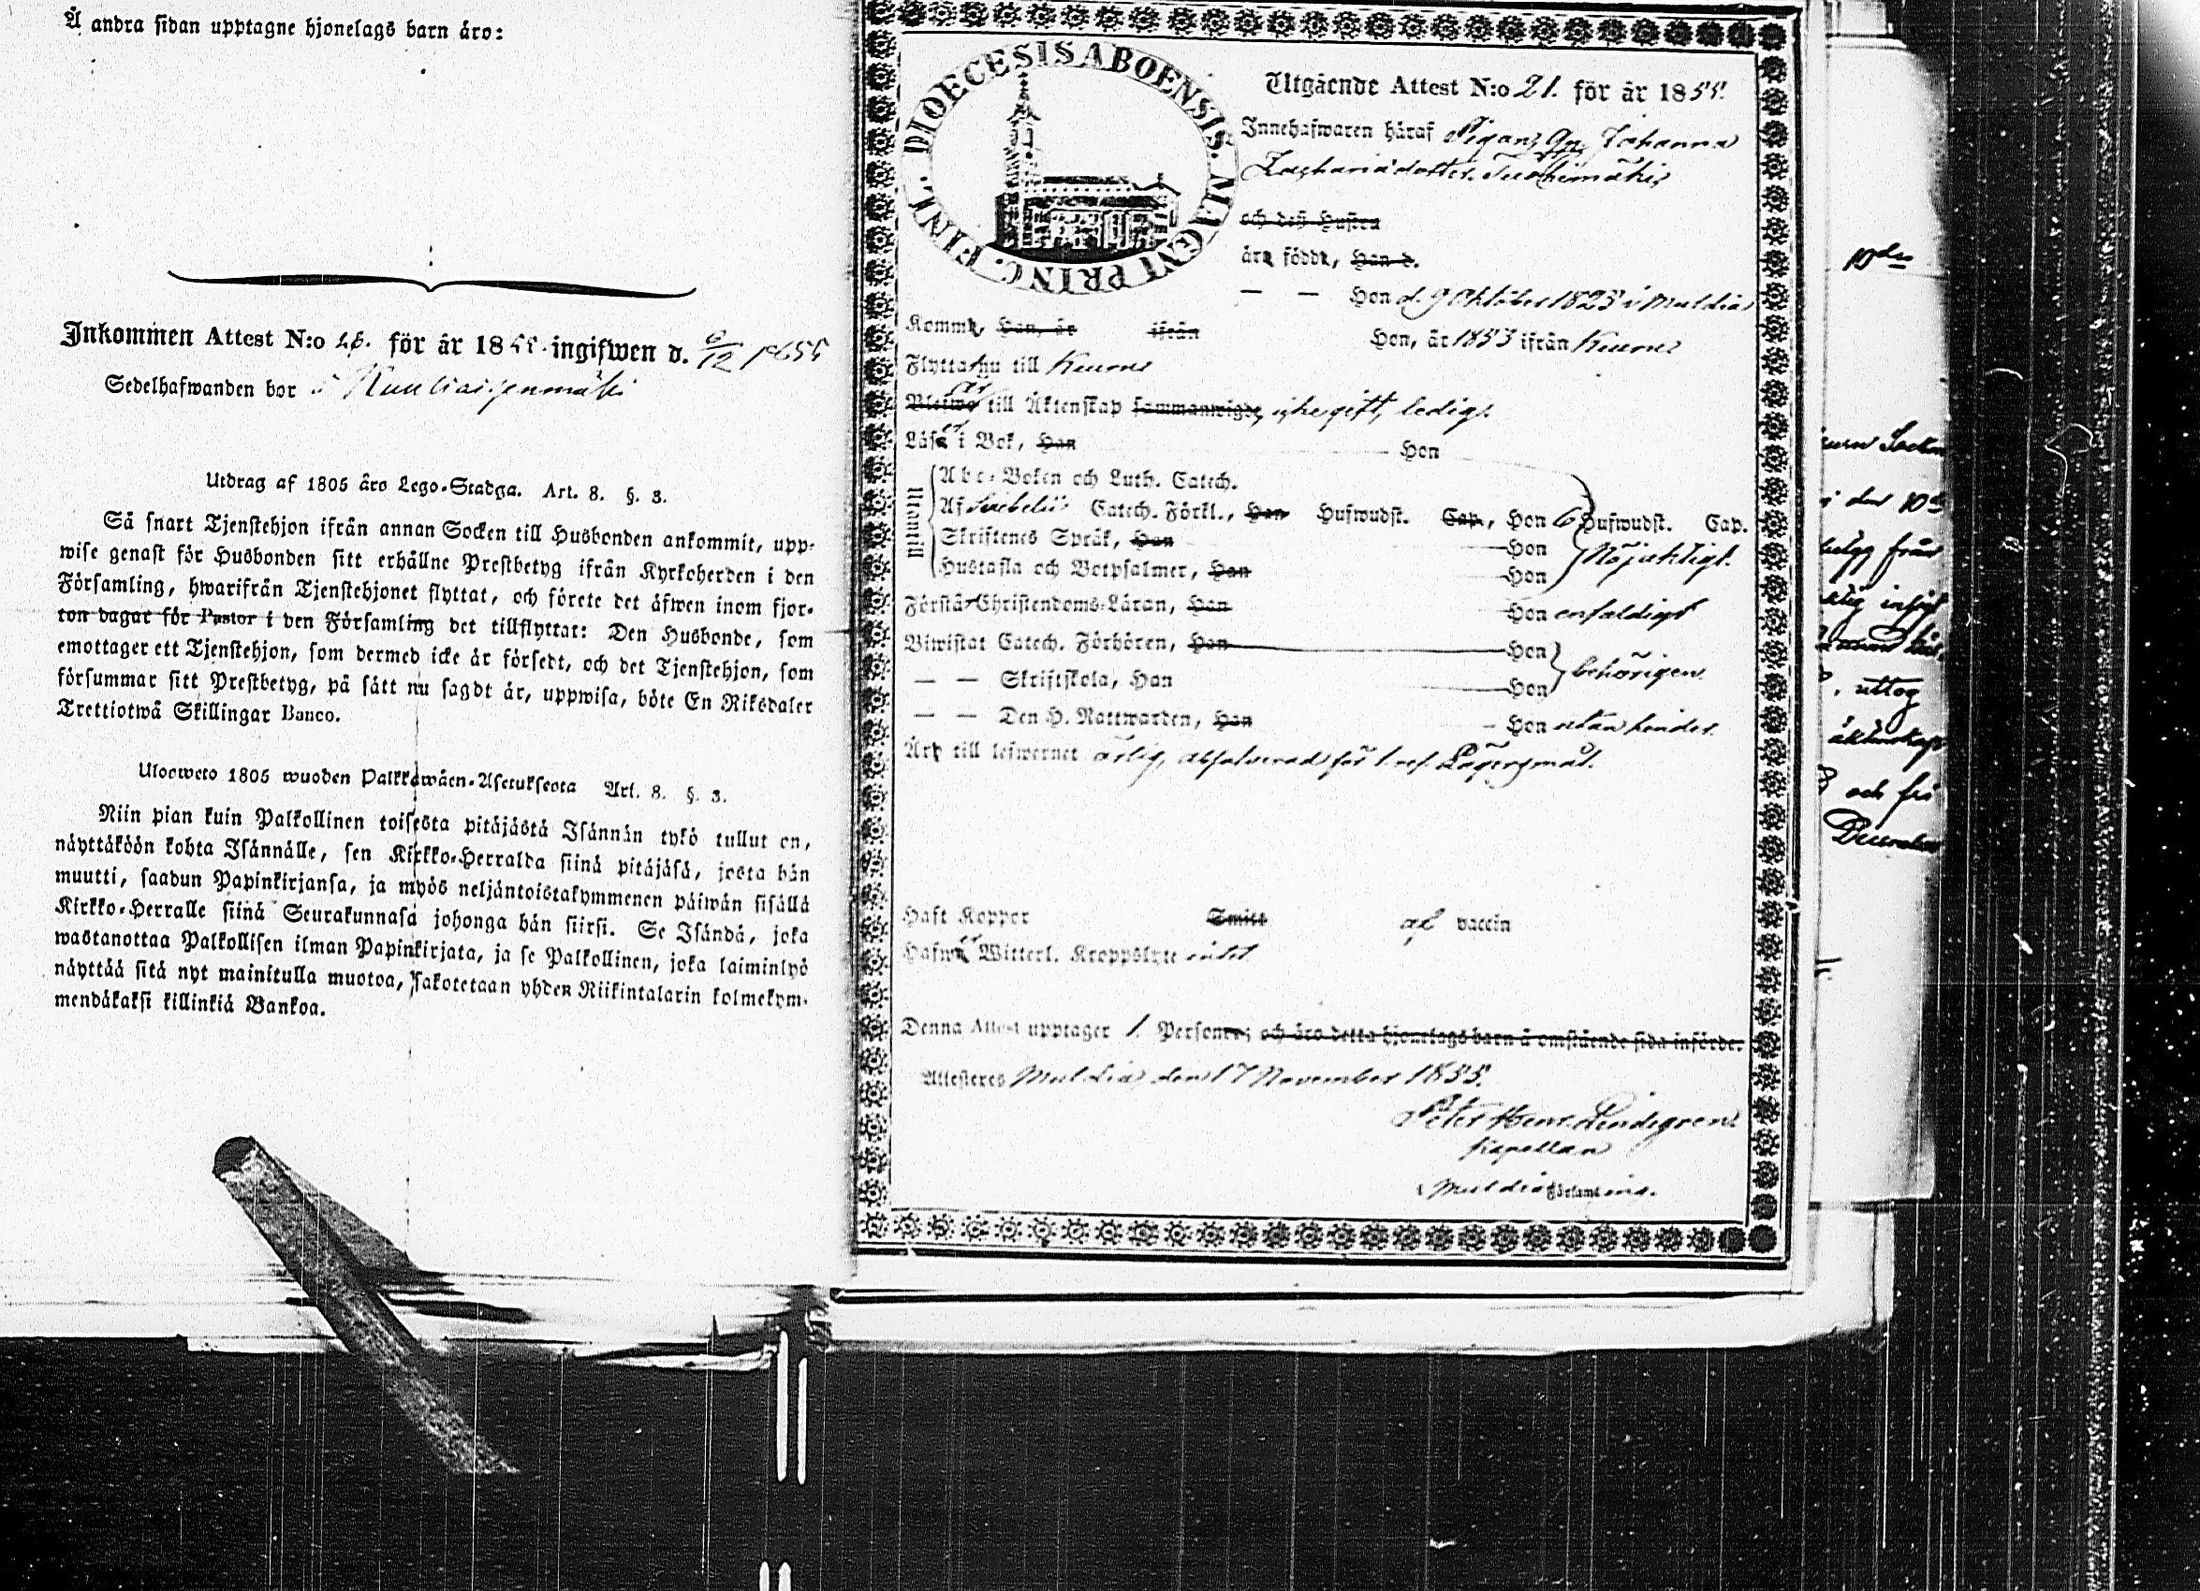 Å andra sidan upptagne hjonelags barn äro:
Inkommen Attest N:o för år 18 55. ingifwen d. 6/12 1855
Sedelhafwanden bor
Utdrag af 1805 års Lego-Stadga. Art. 8. §. 3.
Så snart Tjenstehjon ifrån annan Socken till Husbonden ankommit, upp-
wise genast för Husbonden sitt erhållne Prestbetyg ifrån Kyrkoherden i den
Församling, hwarifrån Tjenstehjonet flyttat, och förete det äfwen inom fjor-
ton dagar för Pastor i den Församling det tillflyttat: Den Husbonde, som
emottager ett Tjenstehjon, som dermed icke är försedt, och det Tjenstehjon, som
försummar sitt Prestbetyg, på sätt nu sagdt är, uppwisa, böte En Riksdaler
Trettiotwå Skillingar Banco.
Ulosweto 1805 wuoden Palkkawäen-Asetuksesta Art. 8. §. 3.
Niin pian kuin Palkollinen toisesta pitäjästä Isännän tykö tullut on,
näyttäköön kohta Isännälle, sen Kirkko-Herralda siinä pitäjäsä, josta hän
muutti, saadun Papinkirjansa, ja myös neljäntoistakymmenen päiwän sisällä
Kirkko-Herralle siinä Seurakunnasa johonga hän siirsi. Se Isändä, joka
wastanottaa Palkollisen ilman Papinkirjata, ja se Palkollinen, joka laiminlyö
näyttää sitä nyt mainitulla muotoa, sakotetaan yhden Riikintalarin kolmekym-
mendäkaksi killinkiä Bankoa.
DIOECESIS ABOENSIS. MAGNI PRINC. FINL.
Utgående Attest N:o 21. för år 1855.
Innehafwaren häraf Pigan Johanna
Zachariädotter
och deß Hustru
äro födde, Han d.
— — Hon d. 9 Oktober 1823 i Muldia
Komme, Han, år ifrån Hon, år 1853 ifrån Keuru
Flyttar nu till Keuru
Blefwo är till Äktenskap sammanwigde, icke gift, ledig.
Läsa er i Bok, Han Hon
Utantill
Abc-Boken och Luth. Catech.
Af Svebelii Catech. Förkl., Han Hufwudst. Cap., Hon 6 Hufwudst. Cap.
Skriftenes Språk, Han Hon Nöjaktigt.
Hustafla och Botpsalmer, Han Hon
Förstår Christendoms-Läran, Han Hon enfaldigt
Biwistat Catech. Förhören, Han Hon
— — Skriftskola, Han Hon behörigen
— — Den H. Nattwarden, Han Hon utan hinder.
Äro till lefwernet ärlig, absolverad för 1. res. Lägersmål.
Haft Koppor Smitt af vaccin
Hafwa er Witterl. Kroppslyte intet
Denna Attest upptager 1. Personer; och äro detta hjonelags barn å omstående sida införde.
Attesteres Muldia den 17 November 1855.
Peter Henr. Lindegren
Kapellan
i Muldia Församling.
10de
Socken
den 10de
betyg från
uttog
äktenskap
och frö
December